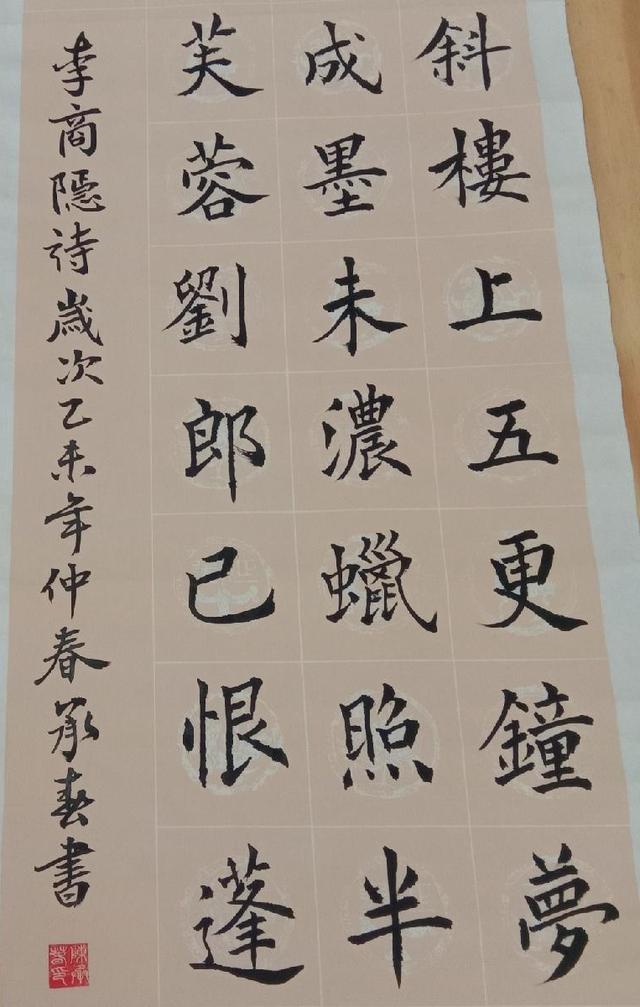 斜樓上五更鐘夢
成墨未濃蠟照半
芙蓉劉郎已恨蓬
李商隱詩歲次乙未年仲春承春書